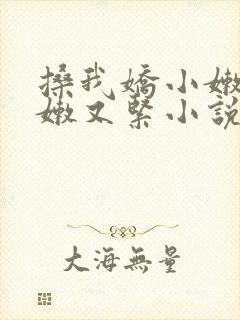 搡我嬌小嫩
嫩又緊小說
大海無量